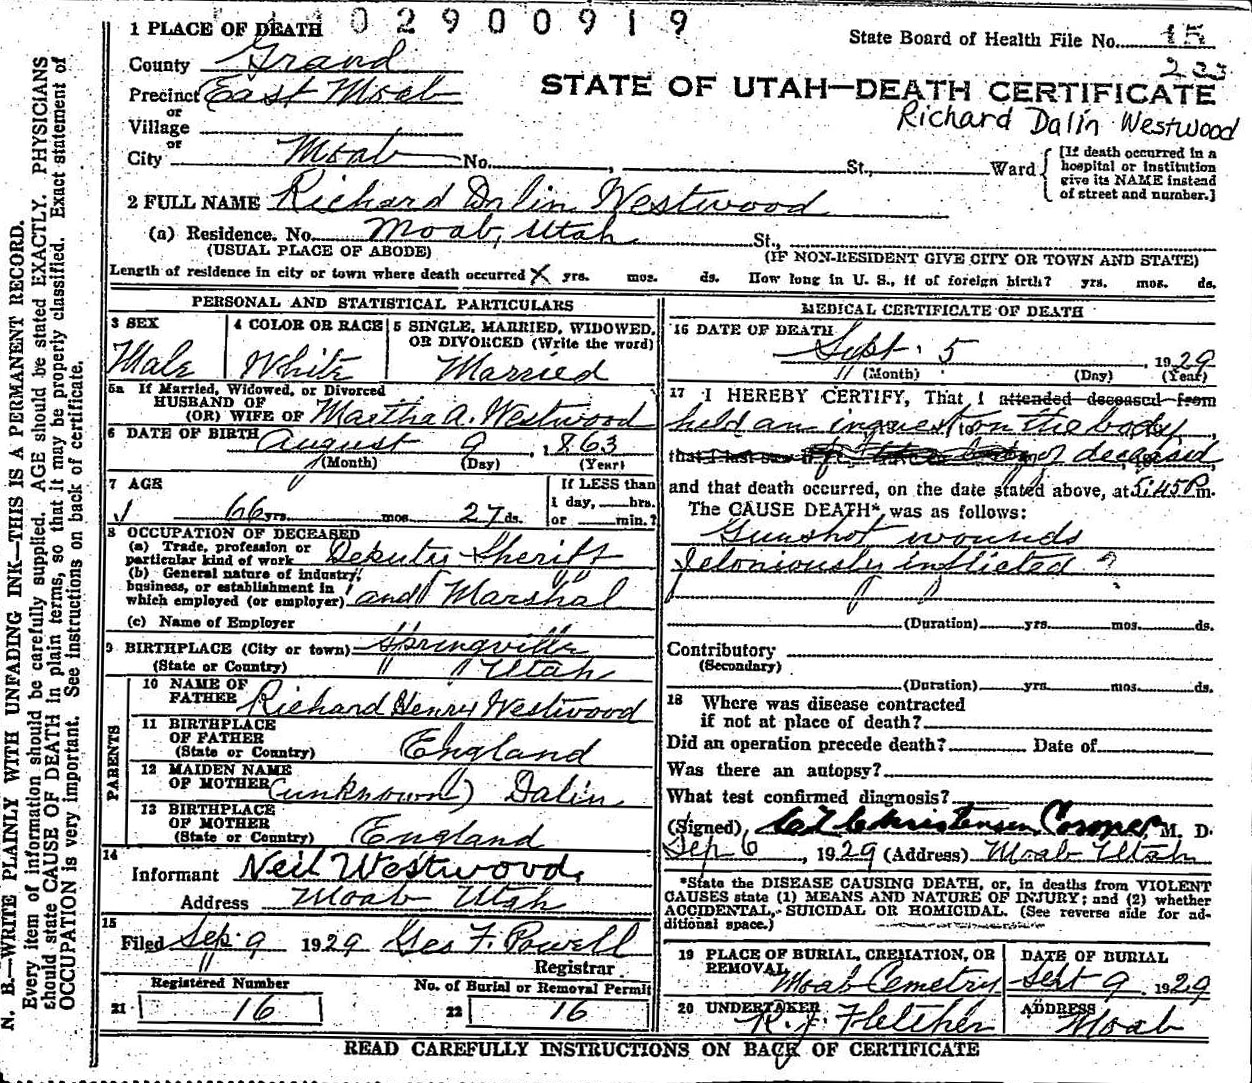 02900919
1 PLACE OF DEATH
State Board of Health File No. 15
233
County Grand
STATE OF UTAH—DEATH CERTIFICATE
Precinct East Moab
Richard Dalin Westwood
or
Village
or
City Moab No. , St., Ward
[If death occurred in a hospital or institution give its NAME instead of street and number.]
2 FULL NAME Richard Dalin Westwood
(a) Residence. No. Moab, Utah St.,
(USUAL PLACE OF ABODE) (IF NON-RESIDENT GIVE CITY OR TOWN AND STATE)
Length of residence in city or town where death occurred X yrs. mos. ds. How long in U. S., if of foreign birth? yrs. mos. ds.
PERSONAL AND STATISTICAL PARTICULARS
3 SEX
Male
4 COLOR OR RACE
White
5 SINGLE, MARRIED, WIDOWED, OR DIVORCED (Write the word)
Married
5a If Married, Widowed, or Divorced
HUSBAND OF
(OR) WIFE OF Martha A. Westwood
6 DATE OF BIRTH August 9, 1863
(Month) (Day) (Year)
7 AGE
66 yrs. mos. 27 ds.
If LESS than
1 day, hrs.
or min.?
8 OCCUPATION OF DECEASED
(a) Trade, profession or
particular kind of work Deputy Sheriff
(b) General nature of industry,
business, or establishment in
which employed (or employer) and Marshal
(c) Name of Employer
9 BIRTHPLACE (City or town) Springville
(State or Country) Utah
PARENTS
10 NAME OF
FATHER Richard Henry Westwood
11 BIRTHPLACE
OF FATHER
(State or Country) England
12 MAIDEN NAME
OF MOTHER (unknown) Dalin
13 BIRTHPLACE
OF MOTHER
(State or Country) England
14
Informant Neil Westwood,
Address Moab Utah
15
Filed Sep. 9 1929 Geo F. Powell
Registrar
Registered Number No. of Burial or Removal Permit
21 16 22 16
MEDICAL CERTIFICATE OF DEATH
16 DATE OF DEATH
Sept. 5, 1929
(Month) (Day) (Year)
17 I HEREBY CERTIFY, That I attended deceased from
held an inquest on the body
that I last saw of deceased
and that death occurred, on the date stated above, at 5:45 P.m.
The CAUSE DEATH*, was as follows:
Gunshot wounds
feloniously inflicted ?
(Duration) yrs. mos. ds.
Contributory
(Secondary)
(Duration) yrs. mos. ds.
18 Where was disease contracted
if not at place of death?
Did an operation precede death? Date of
Was there an autopsy?
What test confirmed diagnosis?
(Signed), Christensen Coroner M. D.
Sep 6, 1929 (Address) Moab Utah
*State the DISEASE CAUSING DEATH, or, in deaths from VIOLENT
CAUSES state (1) MEANS AND NATURE OF INJURY; and (2) whether
ACCIDENTAL, SUICIDAL OR HOMICIDAL. (See reverse side for ad-
ditional space.)
19 PLACE OF BURIAL, CREMATION, OR
REMOVAL Moab Cemetry
DATE OF BURIAL
Sept 9, 1929
20 UNDERTAKER
R. J. Fletcher
ADDRESS
Moab
READ CAREFULLY INSTRUCTIONS ON BACK OF CERTIFICATE
N. B.—WRITE PLAINLY WITH UNFADING INK—THIS IS A PERMANENT RECORD.
Every item of information should be carefully supplied. AGE should be stated EXACTLY. PHYSICIANS
should state CAUSE OF DEATH in plain terms, so that it may be properly classified. Exact statement of
OCCUPATION is very important. See instructions on back of certificate.